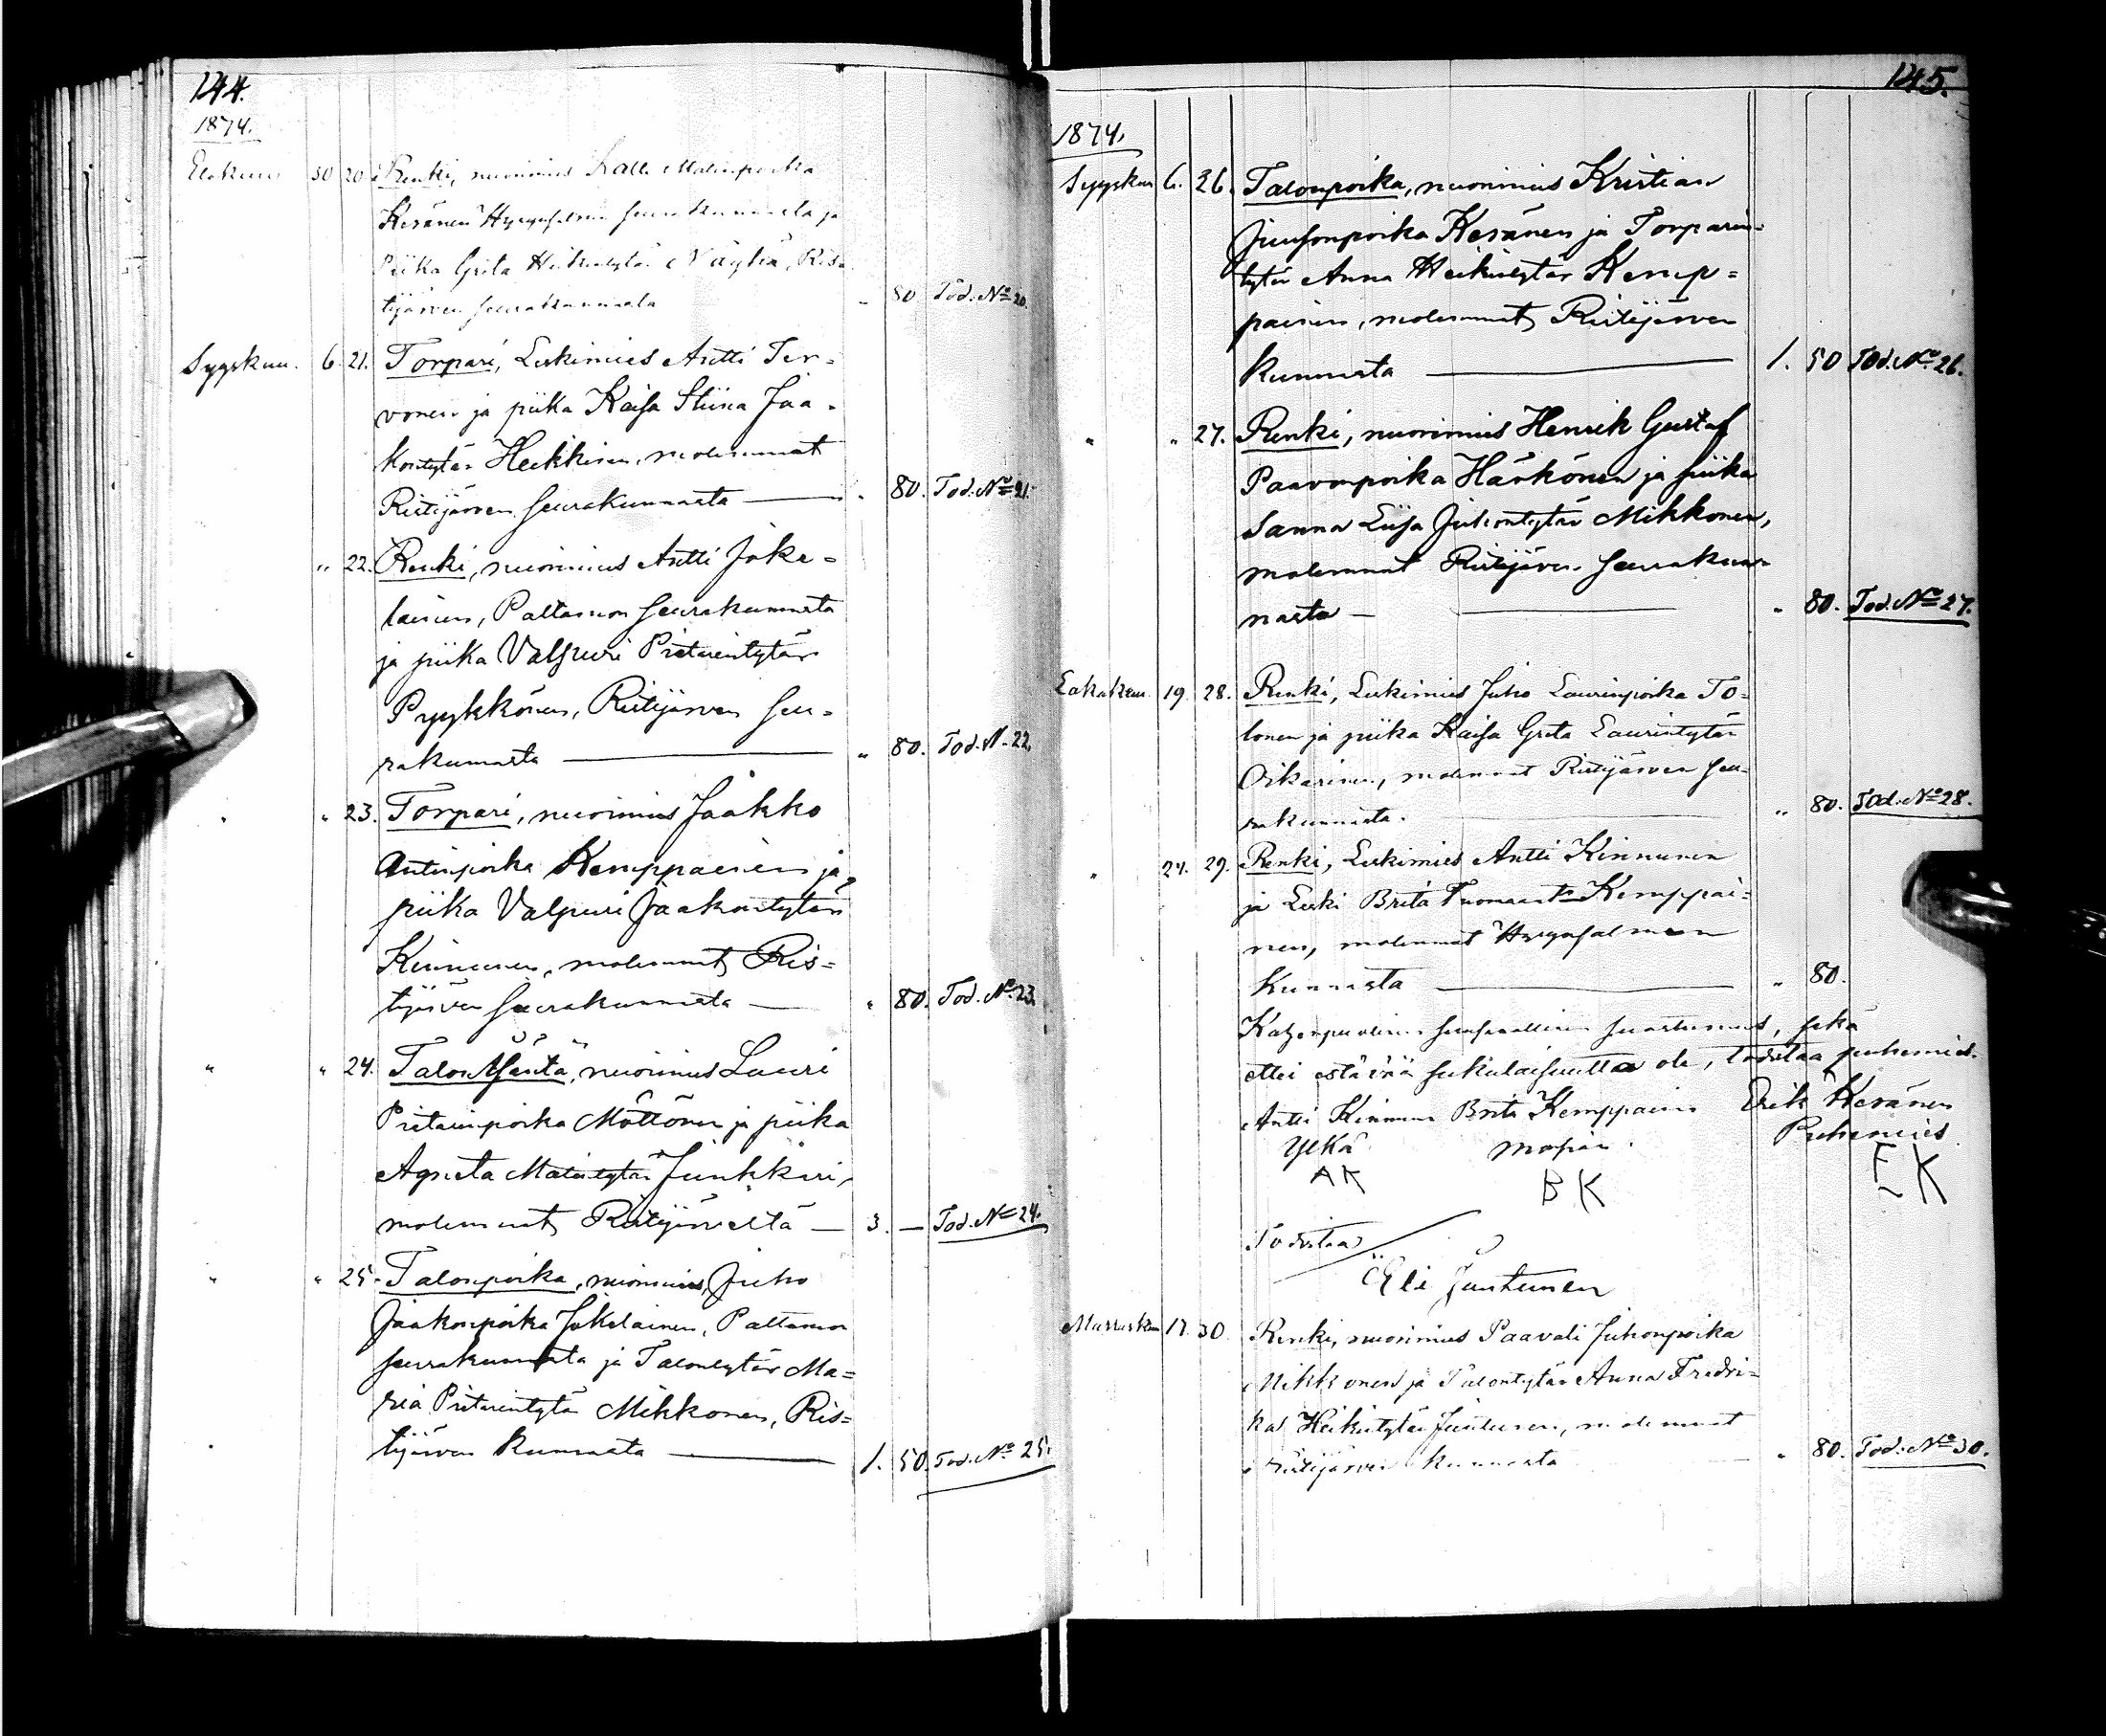 144.
1874.
Elokuu 30 20. Renki, nuorimies Kalle Matinpoika
Keränen Hyrynsalmen seurakunnasta ja
Piika Greta Heikintytär Ris-
tijärven seurakunnasta " 80 Tod. No 20.
Syyskuu. 6. 21. Torpari, Leskimies Antti Ter-
vonen ja piika Kaisa Stiina Jaa-
kontytär Heikkinen, molemmat
Ristijärven seurakunnasta — " 80. Tod. No 21.
" 22. Renki, nuorimies Antti Joke-
lainen, Paltamon seurakunnasta
ja piika Valpuri Pietarintytär
Pyykkönen, Ristijärven seu-
rakunnasta — " 80. Tod. N. 22.
" " 23. Torpari, nuorimies Jaakko
Antinpoika Kemppainen ja
piika Valpuri Jaakontytär
Kinnunen, molemmat Ris=
tijärven seurakunnasta — " 80. Tod. No 23.
" " 24. Talon Isäntä, nuorimies Lauri
Pietarinpoika Möttönen ja piika
Agneta Matintytär Junkkari,
molemmat Ristijärveltä — 3. — Tod. No 24.
" " 25. Talonpoika, nuorimies Juho
Jaakonpoika Jokelainen, Paltamon
seurakunnasta ja Talontytär Ma=
ria Pietarintytär Mikkonen, Ris=
tijärven kunnasta — 1. 50. Tod. No 25.
145.
1874.
Syyskuu 6. 26. Talonpoika, nuorimies Kristian
Juusonpoika Keränen ja Torparin=
tytär Anna Heikintytär Kemp=
painen, molemmat Ristijärven
kunnasta — 1. 50 Tod. No 26.
" " 27. Renki, nuorimies Henrik Gustaf
Paavonpoika Härkönen ja piika
Sanna Liisa Juhontytär Mikkonen,
molemmat Ristijärven seurakun-
nasta — " 80. Tod. No 27.
Lokakuu. 19. 28. Renki, Leskimies Juho Laurinpoika To-
lonen ja piika Kaisa Greta Laurintytär
Oikarinen, molemmat Ristijärven seu-
rakunnasta. " 80. Tod. No 28.
" 24. 29. Renki, Leskimies Antti Kinnunen
ja Leski Brita Tuomaant. Kemppai-
nen, molemmat Hyrynsalmen
kunnasta — " 80.
suostumus, sekä
ettei estävää sukulaisuutta ole, todistaa puhemies.
Antti Kinnunen Brita Kemppainen Erik Keränen
Ylkä morsian. Puhemies
AK BK EK
Todistaa
Eli Juntunen
Marraskuu 17. 30. Renki, nuorimies Paavali Juhonpoika
Mikkonen ja Talontytär Anna Fredri=
ka Heikintytär Juntunen, molemmat
Ristijärven kunnasta " 80. Tod. No 30.